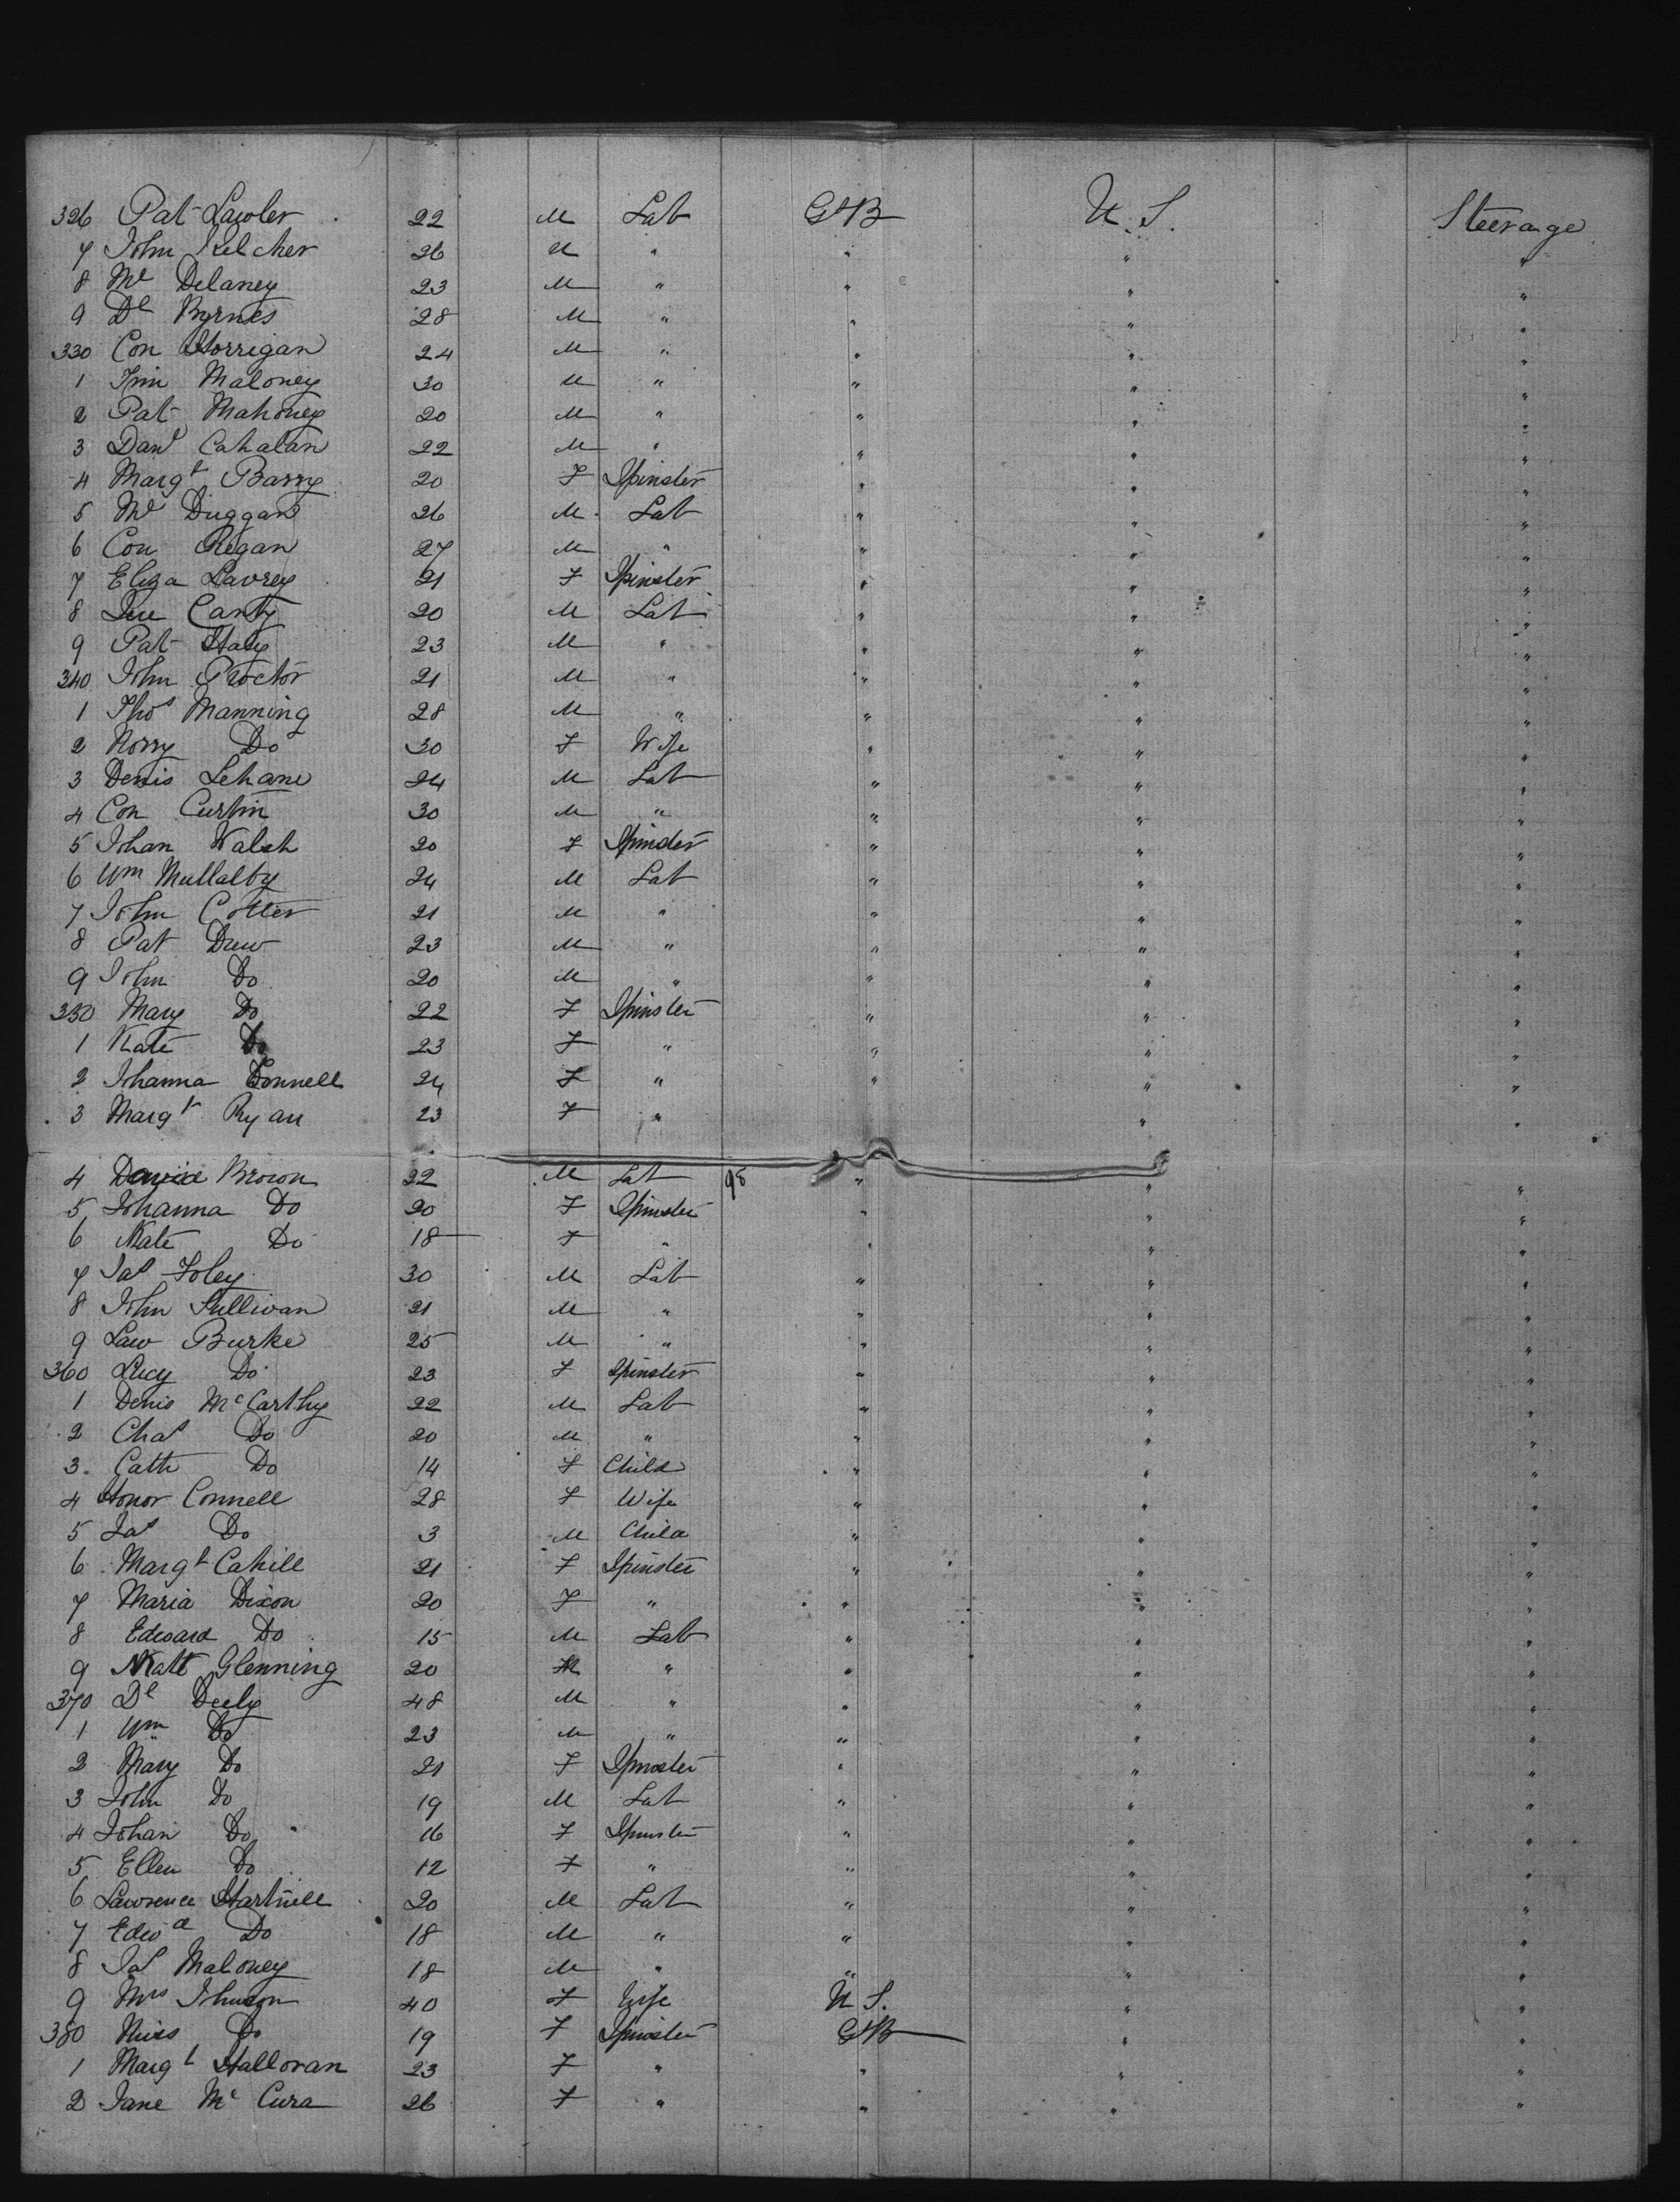 326 Pat Lawler 22 M Lab GtB U.S. Steerage
7 John Kelcher 26 M " " " "
8 Ml Delaney 23 M " " " "
9 Dl Byrnes 28 M " " " "
330 Con Horrigan 24 M " " " "
1 Tim Maloney 30 M " " " "
2 Pat Mahoney 20 M " " " "
3 Danl Cahalan 22 M " " " "
4 Margt Barry 20 F Spinster " " "
5 Ml Duggan 26 M Lab " " "
6 Con Regan 27 M " " " "
7 Eliza Lavrey 21 F Spinster " " "
8 Canty 20 M Lab " " "
9 Pat Haly 23 M " " " "
340 John Proctor 21 M " " " "
1 Thos Manning 28 M " " " "
2 Norry Do 30 F Wife " " "
3 Denis Lehane 24 M Lab " " "
4 Con Curtin 30 M " " " "
5 Johan Walsh 20 F Spinster " " "
6 Wm Mullalby 24 M Lab " " "
7 John Cotter 21 M " " " "
8 Pat Drew 23 M " " " "
9 John Do 20 M " " " "
350 Mary Do 22 F Spinster " " "
1 Kate Do 23 F " " " "
2 Johanna Connell 24 F " " " "
3 Margt Ryan 23 F " " "
4 David Brown 22 M Lab 98 " " "
5 Johanna Do 20 F Spinster " " "
6 Kate Do 18 F " " " "
7 Jas Foley 30 M Lab " " "
8 John Sullivan 21 M " " " "
9 Law Burke 25 M " " " "
360 Lucy Do 23 F Spinster " " "
1 Denis McCarthy 22 M Lab " " "
2 Chas Do 20 M " " " "
3 Cath Do 14 F Child " " "
4 Honor Connell 28 F Wife " " "
5 Jas Do 3 M Child " " "
6 Margt Cahill 21 F Spinster " " "
7 Maria Dixon 20 F " " " "
8 Edward Do 15 M Lab " " "
9 Matt Glenning 20 M " " " "
370 Dl Deely 48 M " " " "
1 Wm Do 23 M " " " "
2 Mary Do 21 F Spinster " " "
3 John Do 19 M Lab " " "
4 Johan Do 16 F Spinster " " "
5 Ellen Do 12 F " " " "
6 Lawrence Hartnell 20 M Lab " " "
7 Edwd Do 18 M " " " "
8 Jas Maloney 18 M " " " "
9 Mrs Johnson 40 F Wife U S. " "
380 Miss Do 19 F Spinster GtB " "
1 Margt Halloran 23 F " " " "
2 Jane Mc Cura 26 F " " " "